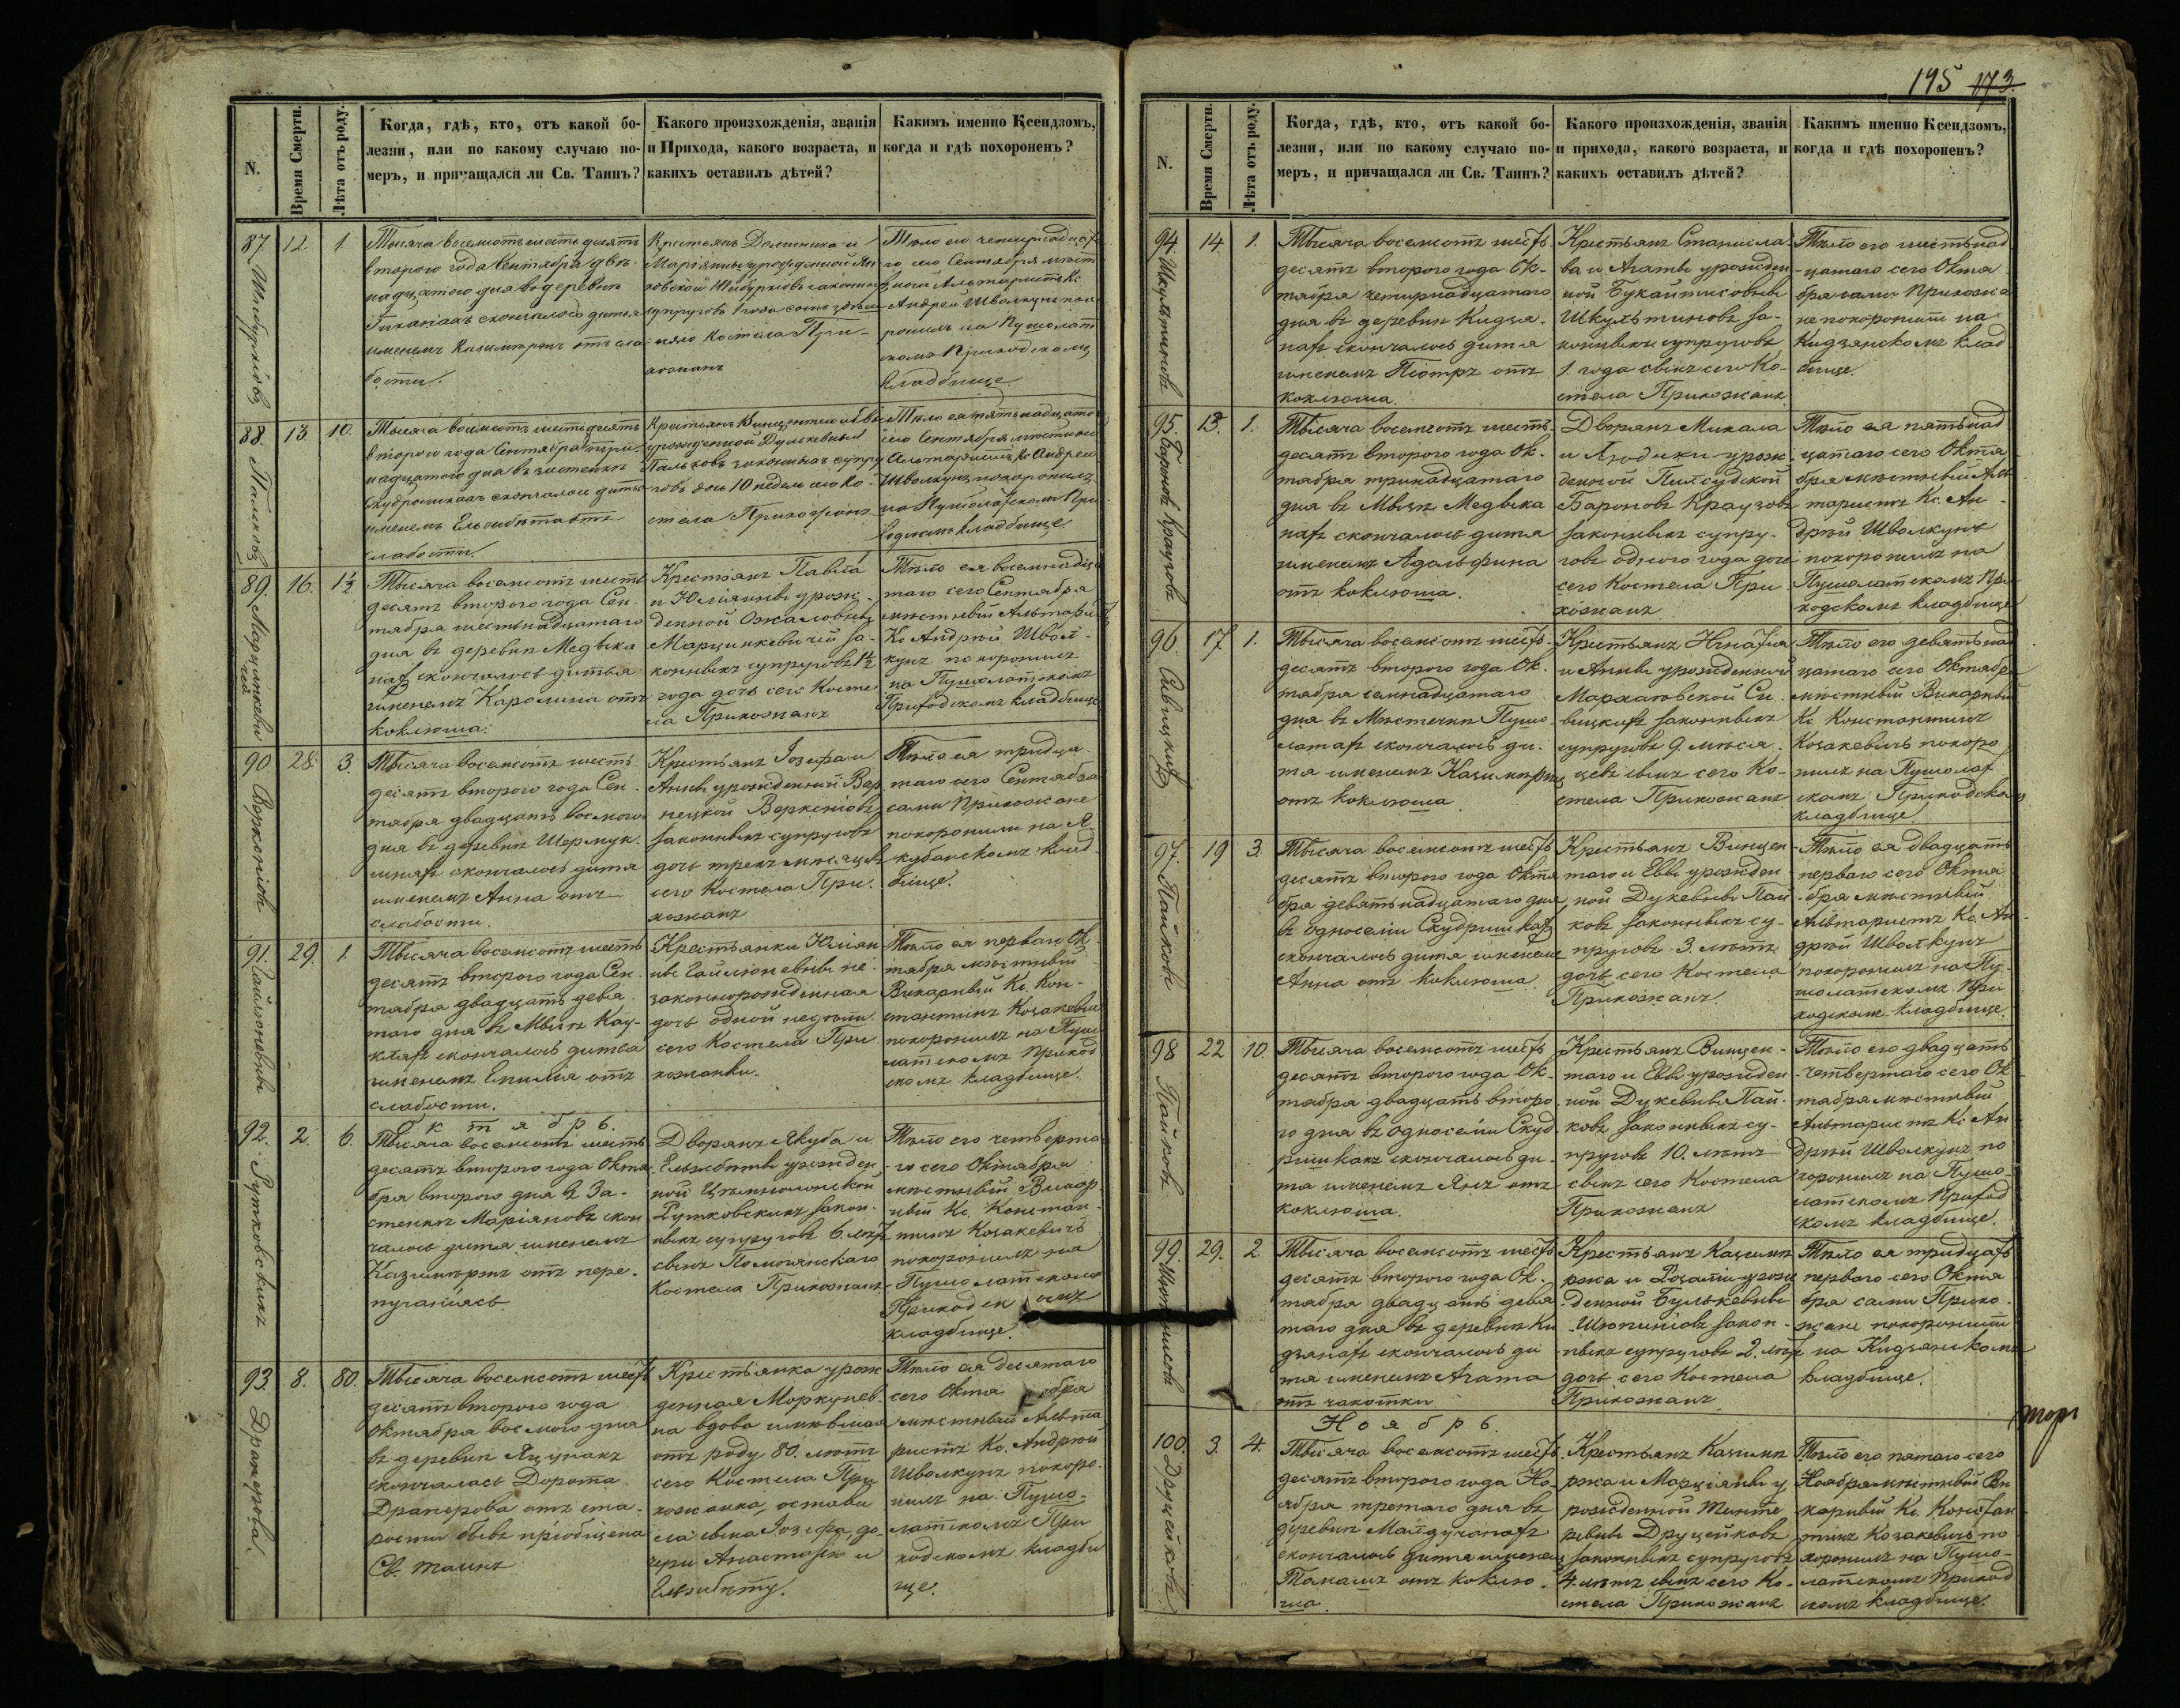 195 173.
N.
Время Смерти.
Лѣта отъ роду.
Когда, гдѣ, кто, отъ какой бо-
лезни, или по какому случаю по-
меръ, и причащался ли Св. Таинъ?
Какого произхожденія, званія
и Прихода, какого возраста, и
какихъ оставилъ дѣтей?
Какимъ именно Ксендзомъ,
когда и гдѣ похороненъ?
87. 12. 1.
Тысяча восемсотъ шестьдесятъ
второго года Сентября двѣ-
надцатого дня въ деревнѣ
скончалось дитя
именемъ Казимѣржъ отъ сла
бости.
Крестьянъ Доминика и
Маріянны урожденной
законныхъ
супруговъ 1 года сынъ
Костела При-
хожанъ
Тѣло его четырнадцата
го сего Сентября мѣст
ной Альтаристъ Кс.
Андрей Шволкунъ похо
ронилъ на Пушолат
скомъ Приходскомъ
кладбище.
88. 13. 10. Пальковъ
Тысяча восемсотъ шестьдесятъ
второго года Сентября трина
надцатого дня въ застенкѣ
скончалось дитя
именемъ Ельжбѣта отъ
слабости
Крестьянъ Винцентего и Еввы
урожденной Дулькевны
Пальковъ законныхъ супру
говъ дочь 10 недель сего Ко-
стела Прихожанъ
Тѣло ея пятьнадцатого
сего Сентября мѣстный
Альтаристъ Кс Андрей
Шволкунъ похоронилъ
на Пушолатскомъ При
ходскомъ кладбище
89. 16. 1½ Марцинкеви
чей
Тысяча восемсотъ шесть
десятъ второго года Сен-
тября шестьнадцатаго
дня въ деревнѣ Медыка
нах скончалось дитья
именемъ Каролина отъ
коклюша.
Крестьянъ Павла
и Юліянны урож-
денной
Марцинкевичей за-
конныхъ супруговъ 1½
года дочь сего Косте
ла Прихожанъ
Тѣло ея восемнадца
таго сего Сентября
мѣстный Альтари
Кс Андрей Швол-
кунъ похоронилъ
на Пушолатскомъ
Приходскомъ кладбище
90 28. 3. Верксніовъ
Тысяча восемсотъ шесть
десятъ второго года Сен-
тября двадцать восмого
дня въ деревнѣ Шермук-
шняхъ скончалось дитя
именемъ Анна отъ
слабости.
Крестьянъ Іозефа и
Анны урожденной Вар
нецкой Верксніовъ
законныхъ супруговъ
дочь трехъ мѣсяцевъ
сего Костела При-
хожанъ
Тѣло ея тридца-
таго сего Сентября
сами Прихожане
похоронили на Я
кубанскомъ клад-
бище.
91. 29. 1. Гайлюневны
Тысяча восемсотъ шесть
десятъ второго года Сен-
тября двадцать девя-
таго дня въ Мѣйзѣ Кау-
кляхъ скончалось дитья
именемъ Емилія отъ
слабости.
Крестьянки Юліян-
ны Гайлюневны не-
законнорожденная
дочь одной недѣли
сего Костела При
хожанки.
Тѣло ея перваго Ок-
тября мѣстный
Викарный Кс. Кон-
стантинъ Козакевичъ
похоронилъ на Пушо
латскомъ Приход
скомъ кладбище.
Октябрь.
92. 2. 6. Рутковскихъ
Тысяча восемсотъ шесть
десятъ второго года Октя
бря второго дня въ За-
стенкѣ Маріяновъ скон
чалось дитя именемъ
Казимѣржъ отъ пере-
пуганіясь.
Дворянъ Якуба и
Ельжбѣты урожден
ной
Рутковскихъ закон-
ныхъ супруговъ 6. лѣтъ
сынъ
Костела Прихожанъ.
Тѣло его четверта
го сего Октября
мѣстный Викар-
ный Кс. Констан-
тинъ Козакевичъ
похоронилъ на
Пушолатскомъ
Приходскомъ
кладбище.
93. 8. 80. Драперова.
Тысяча восемсотъ шесть
десятъ второго года
Октября восмого дня
въ деревнѣ Яцунахъ
скончалась Дорота
Драперова отъ ста-
рости бывъ пріобщена
Св. Таинъ
Крестьянка урож
денная Моркунев-
на вдова имѣвшая
отъ роду 80. лѣтъ
сего Костела При
хожанка, остави
ла сына Іозефа, до-
чери Анастазію и
Ельжбѣту.
Тѣло ея десятаго
сего Октября
мѣстный Альта
ристъ Кс. Андрей
Шволкунъ похоро-
нилъ на Пушо-
латскомъ При
ходскомъ кладби
ще.
N.
Время Смерти.
Лѣта отъ роду.
Когда, гдѣ, кто, отъ какой бо-
лезни, или по какому случаю по-
меръ, и причащался ли Св. Таинъ?
Какого произхожденія, званія
и прихода, какого возраста, и
какихъ оставилъ дѣтей?
Какимъ именно Ксендзомъ,
когда и гдѣ похороненъ?
94. 14 1. Шкультиновъ
Тысяча восемсотъ шесть-
десятъ второго года Ок-
тября четырнадцатаго
дня въ деревнѣ Кидзя-
нахъ скончалось дитя
именемъ Піотръ отъ
коклюша.
Крестьянъ Станисла-
ва и Агаты урожден
ной Букайтисовны
Шкультиновъ за-
конныхъ супруговъ
1. года сынъ сего Ко-
стела Прихожанъ
Тѣло его шестьнад
цатаго сего Октя
бря сами Прихожа
не похоронили на
Кидзянскомъ клад
бище.
95. 13. 1. Бароновъ Краузовъ
Тысяча восемсотъ шесть
десятъ второго года Ок-
тября тринадцатаго
дня въ Мѣйзѣ Медыка
нахъ скончалось дитя
именемъ Адольфина
отъ коклюша.
Дворянъ Михала
и Людвики урож-
денной Пилсудской
Бароновъ Краузовъ
законныхъ супру-
говъ одного года дочь
сего Костела При
хожанъ
Тѣло ея пятьнад
цатаго сего Октя
бря мѣстный Аль
таристъ Кс. Ан-
дрей Шволкунъ
похоронилъ на
Пушолатскомъ При
ходскомъ кладбище
96. 17 1. Савицкихъ
Тысяча восемсотъ шесть-
десятъ второго года Ок-
тября семнадцатаго
дня въ Мѣстечкѣ Пушо
латахъ скончалось ди-
тя именемъ Казимѣржъ
отъ коклюша.
Крестьянъ Игнатія
и Анны урожденной
Са-
вицкихъ законныхъ
супруговъ 9. мѣся-
цевъ сынъ сего Ко-
стела Прихожанъ
Тѣло его девятьнад
цатаго сего Октября
мѣстный Викарный
Кс. Константинъ
Козакевичъ похоро
нилъ на Пушолат
скомъ Приходскомъ
кладбище.
97. 19 3. Пайковъ
Тысяча восемсотъ шесть
десятъ второго года Октя
бря девятьнадцатаго дня
въ односеліи Скудришкахъ
скончалось дитя именемъ
Анна отъ коклюша.
Крестьянъ Винцен-
таго и Еввы урожден
ной Дукевны Пай
ковъ законныхъ су-
пруговъ 3. лѣтъ
дочь сего Костела
Прихожанъ.
Тѣло ея двадцать
перваго сего Октя
бря мѣстный
Альтаристъ Кс. Ан-
дрей Шволкунъ
похоронилъ на Пу-
шолатскомъ При
ходскомъ кладбище.
98 22 10. Пайковъ
Тысяча восемсотъ шесть
десятъ второго года Ок-
тября двадцать второ
го дня въ односеліи Скуд
ришкахъ скончалось ди-
тя именемъ Янъ отъ
коклюша.
Крестьянъ Винцен-
таго и Еввы урожден
ной Дукевны Пай-
ковъ законныхъ су-
пруговъ 10. лѣтъ
сынъ сего Костела
Прихожанъ
Тѣло его двадцать
четвертаго сего Ок
тября мѣстный
Альтаристъ Кс Ан
дрей Шволкунъ по
хоронилъ на Пушо-
латскомъ Приход
скомъ кладбище.
99. 29. 2
Тысяча восемсотъ шесть
десятъ второго года Ок-
тября двадцать девя
таго дня въ деревнѣ Ки
дзянахъ скончалось ди
тя именемъ Агата
отъ чахотки
Крестьянъ Казимѣ
ржа и Розаліи урож
денной Булькевны
закон-
ныхъ супруговъ 2. лѣтъ
дочь сего Костела
Прихожанъ.
Тѣло ея тридцать
перваго сего Октя
бря сами Прихо-
жане похоронили
на Кидзянскомъ
кладбище.
Ноябрь.
100. 3. 4. Друцейковъ
Тысяча восемсотъ шесть
десятъ второго года Но-
ября третяго дня въ
деревнѣ Майдуганахъ
скончалось дитя именемъ
Тамашъ отъ коклю-
ша.
Крестьянъ Казимѣ
ржа и Марціянны у
рожденной
Друцейковъ
законныхъ супруговъ
4. лѣтъ сынъ сего Ко-
стела Прихожанъ
Тѣло его пятаго сего
Ноября мѣстный Ви
карный Кс. Констан
тинъ Козакевичъ по
хоронилъ на Пушо-
латскомъ Приход
скомъ кладбище.